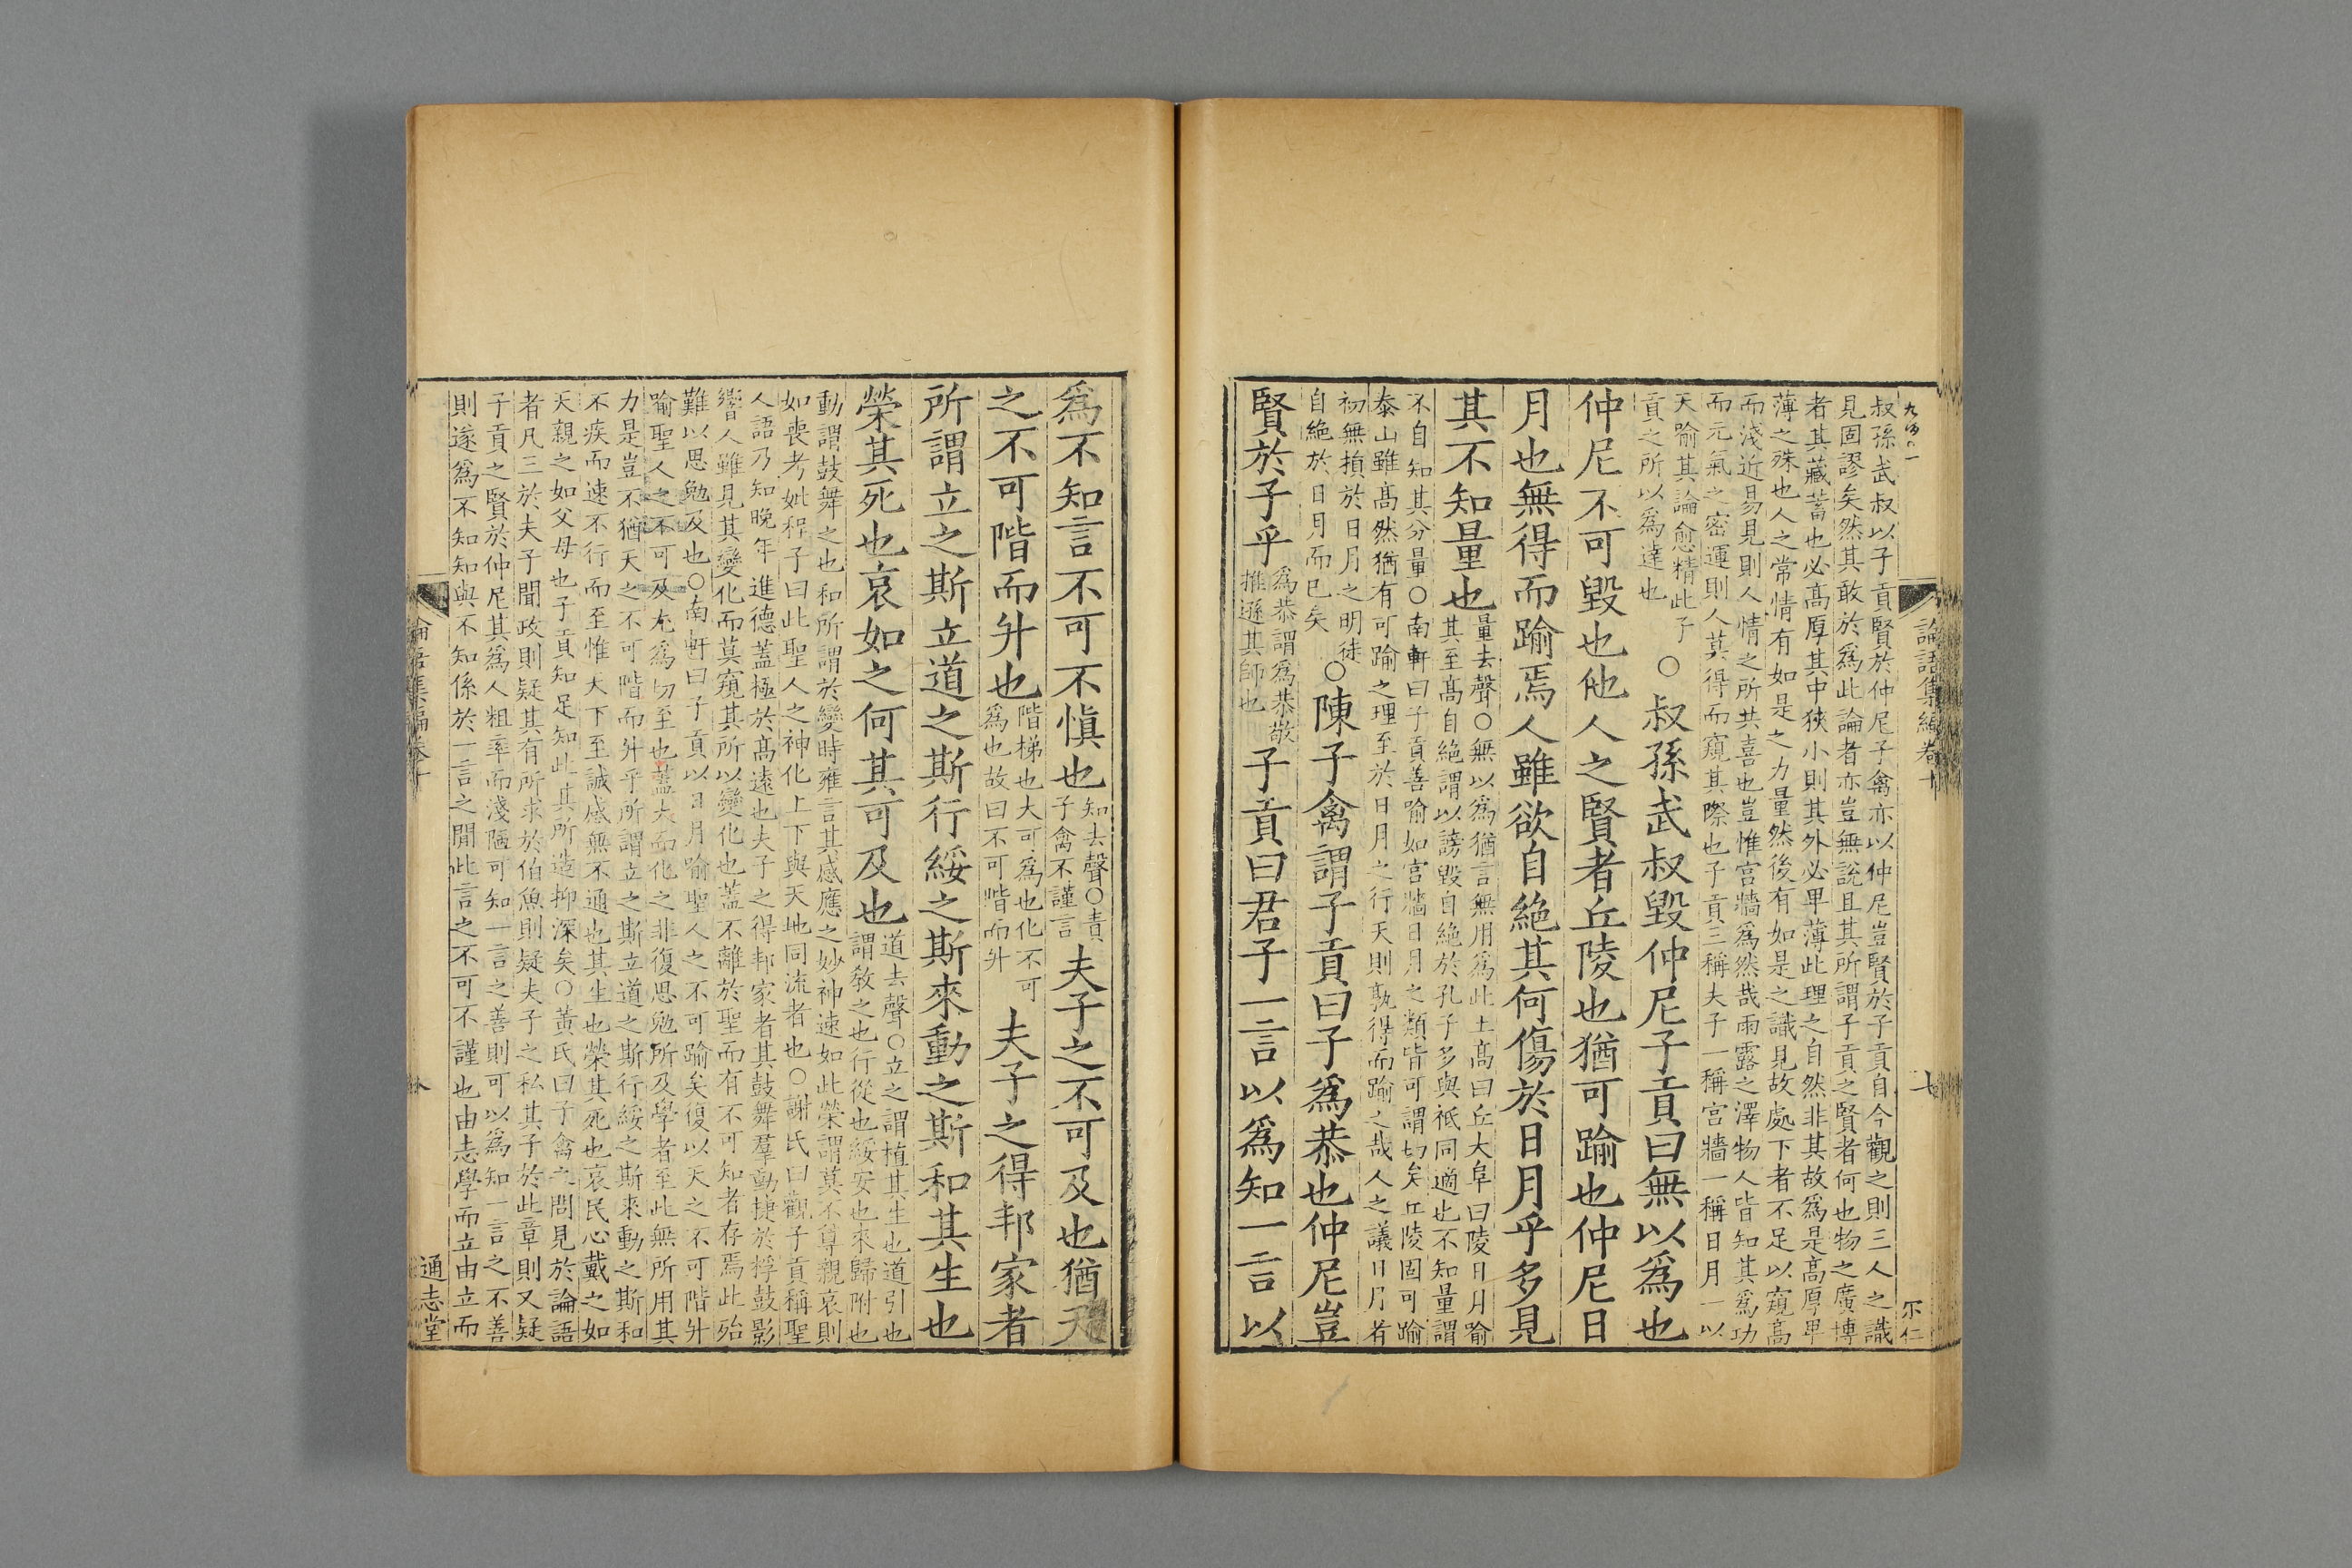 叔孫武叔以子貢賢於仲尼子禽亦以仲尼豈賢於子貢自今觀之則三人之識
見固謬矣然其敢於為此論者亦豈無說且其所謂子貢之賢者何也物之廣博
者其藏蓄也必高厚其中狹小則其外必卑薄此理之自然非其故為是高厚卑
薄之殊也人之常情有如是之力量然後有如是之識見故處下者不足以窺高
而淺近易見則人情之所共喜也豈惟宫牆為然哉雨露之澤物人皆知其為功
而元氣之密運則人莫得而窺其際也子貢三稱夫子一稱宫牆一稱日月一以
天喻其論愈精此子
貢之所以為達也
○叔孫武叔毀仲尼子貢曰無以爲也
仲尼不可毀也他人之賢者丘陵也猶可踰也仲尼日
月也無得而踰焉人雖欲自絶其何傷於日月乎多見
其不知量也
量去聲○無以爲猶言無用爲此土高曰丘大阜曰陵日月踰
其至高自絶謂以謗毀自絶於孔子多與祇同適也不知量謂
不自知其分量○南軒曰子貢善喻如宫牆日月之類皆可謂切矣丘陵固可踰
泰山雖高然猶有可踰之理至於日月之行天則孰得而踰之哉人之議日月者
初無損於日月之明徒
自絶於日月而已矣
○陳子禽謂子貢曰子爲恭也仲尼豈
賢於子乎
爲恭謂爲恭敬
推遜其師也
子貢曰君子一言以爲知一言以
論語集編卷十
七
尔仁
爲不知言不可不慎也
知去聲○責
子禽不謹言
夫子之不可及也猶天
之不可階而升也
階梯也大可爲也化不可
爲也故曰不可階而升
夫子之得邦家者
所謂立之斯立道之斯行綏之斯來動之斯和其生也
榮其死也哀如之何其可及也
道去聲○立之謂植其生也道引也
謂敎之也行從也綏安也來歸附也
動謂鼓舞之也和所謂於變時雍言其感應之妙神速如此榮謂莫不尊親哀則
如喪考妣程子曰此聖人之神化上下與天地同流者也○謝氏曰觀子貢稱聖
人語乃知晚年進德蓋極於高遠也夫子之得邦家者其鼓舞羣動捷於桴鼓影
響人雖見其變化而莫窺其所以變化也蓋不離於聖而有不可知者存焉此殆
難以思勉及也○南軒曰子貢以日月喻聖人之不可踰矣復以天之不可階升
喻聖人之不可及尤爲切至也蓋大而化之非復思勉所及學者至此無所用其
力是豈不猶天之不可階而升乎所謂立之斯立道之斯行綏之斯來動之斯和
不疾而速不行而至惟天下至誠感無不通也其生也榮其死也哀民心戴之如
天親之如父母也子貢知足知此其所造抑深矣○黃氏曰子禽之問見於論語
者凡三於夫子聞政則疑其有所求於伯魚則疑夫子之私其子於此章則又疑
子貢之賢於仲尼其爲人粗率而淺陋可知一言之善則可以爲知一言之不善
則遂爲不知知與不知係於一言之間此言之不可不謹也由志學而立由立而
論語集編卷十
通志堂